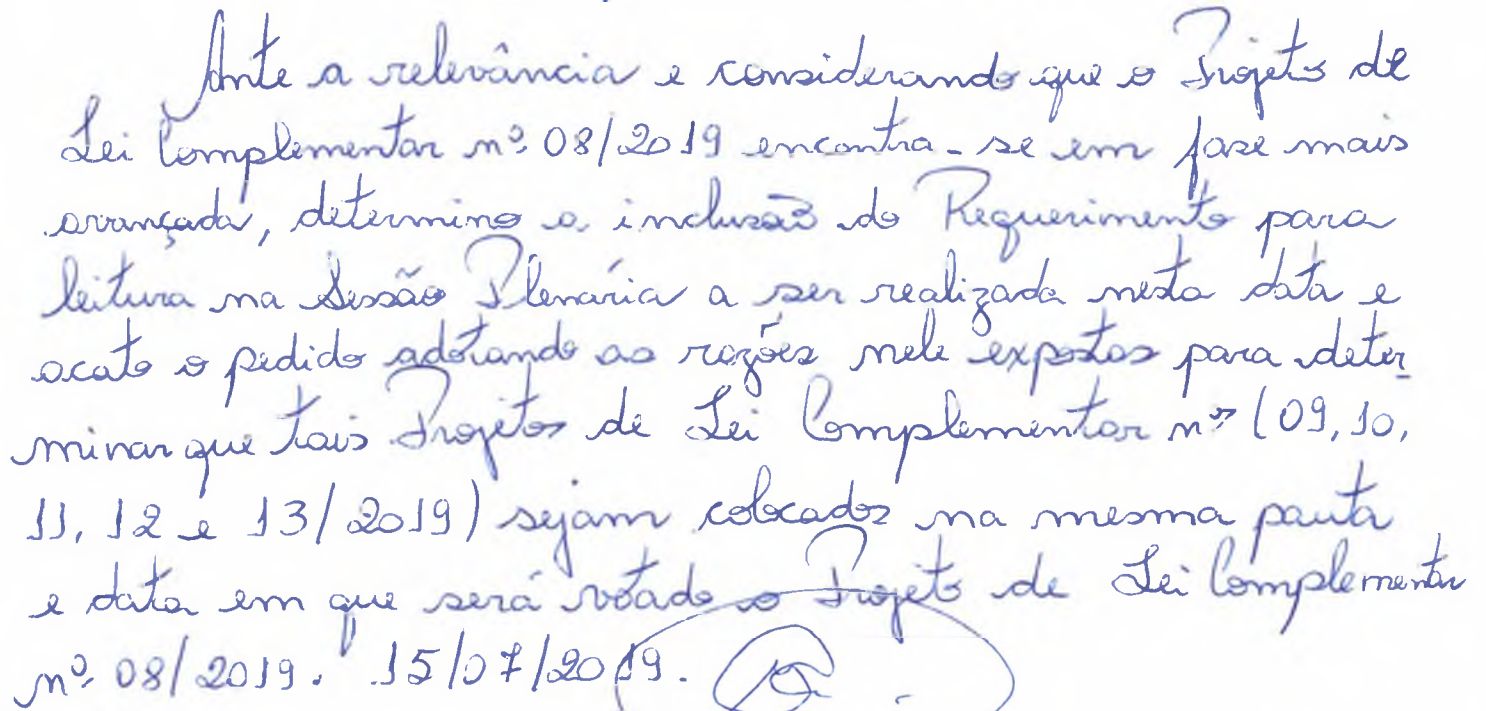 Ante a relevância e considerando que o Projeto de
Lei Complementar nº 08/2019 encontra-se em fase mais
avançada, determino a inclusão do Requerimento para
leitura na Sessão Plenária a ser realizada nesta data e
acato o pedido adotando as razões nele expostas para deter
minar que tais Projetos de Lei Complementar nºs (09, 10,
11, 12 e 13/2019) sejam colocados na mesma pauta
e data em que será votado o Projeto de Lei Complementar
nº 08/2019. 15/07/2019.